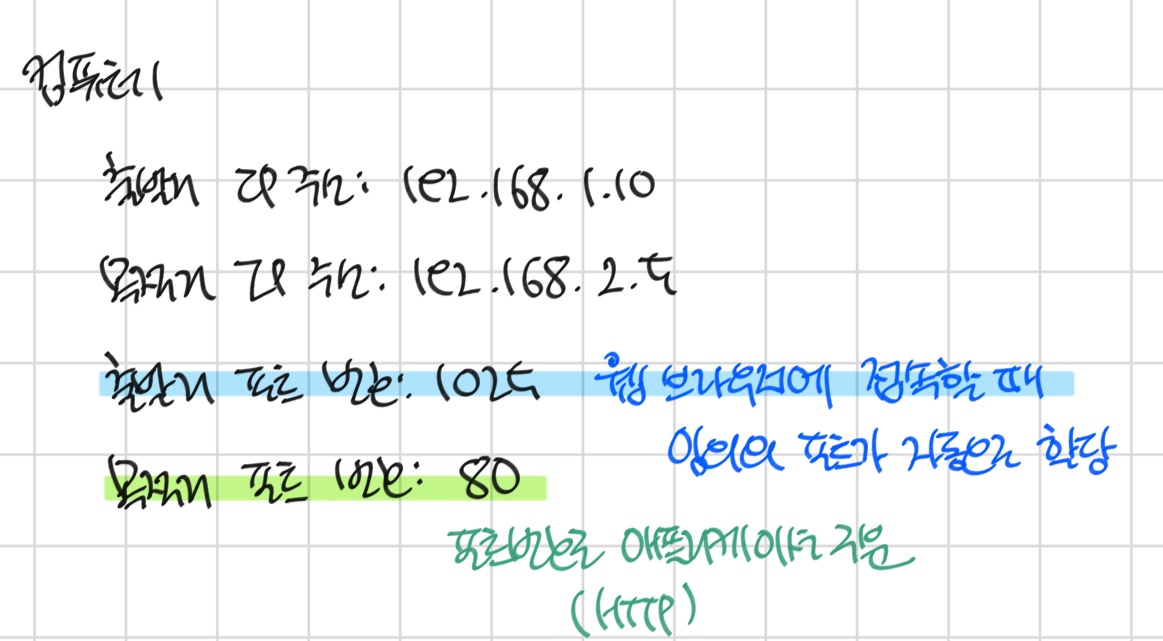 컴퓨터1
출발지 IP 주소: 192.168.1.10
목적지 IP 주소: 192.168.2.5
출발지 포트 번호: 1025 웹 브라우저에 접속할 때
임의의 포트가 자동으로 할당
목적지 포트 번호: 80
포트번호로 애플리케이션 구분
(HTTP)